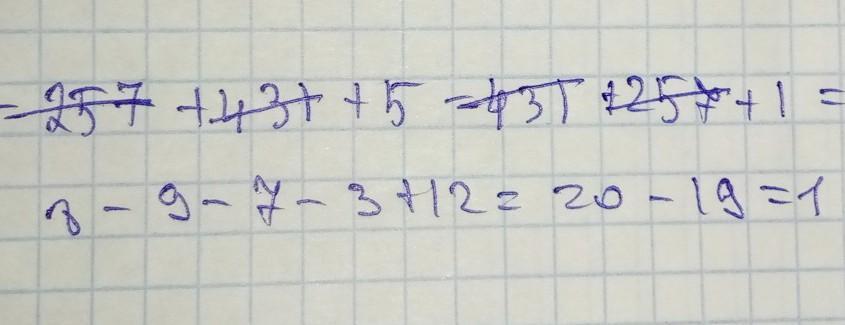 - 257 + 431 + 5 - 431 + 257 + 1 =
8 - 9 - 7 - 3 + 12 = 20 - 19 = 1